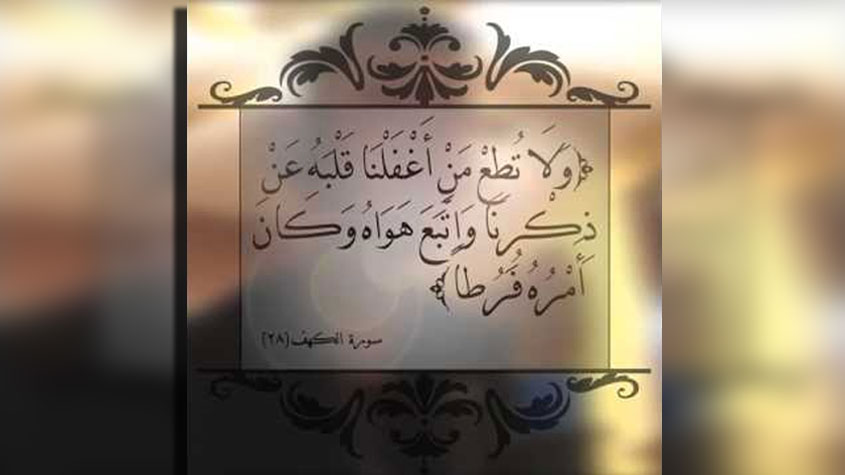 ﴿وَلَا تُطِعْ مَنْ أَغْفَلْنَا قَلْبَهُ عَنْ
ذِكْرِنَا وَاتَّبَعَ هَوَاهُ وَكَانَ
أَمْرُهُ فُرُطاً﴾
سورة الكهف (٢٨)